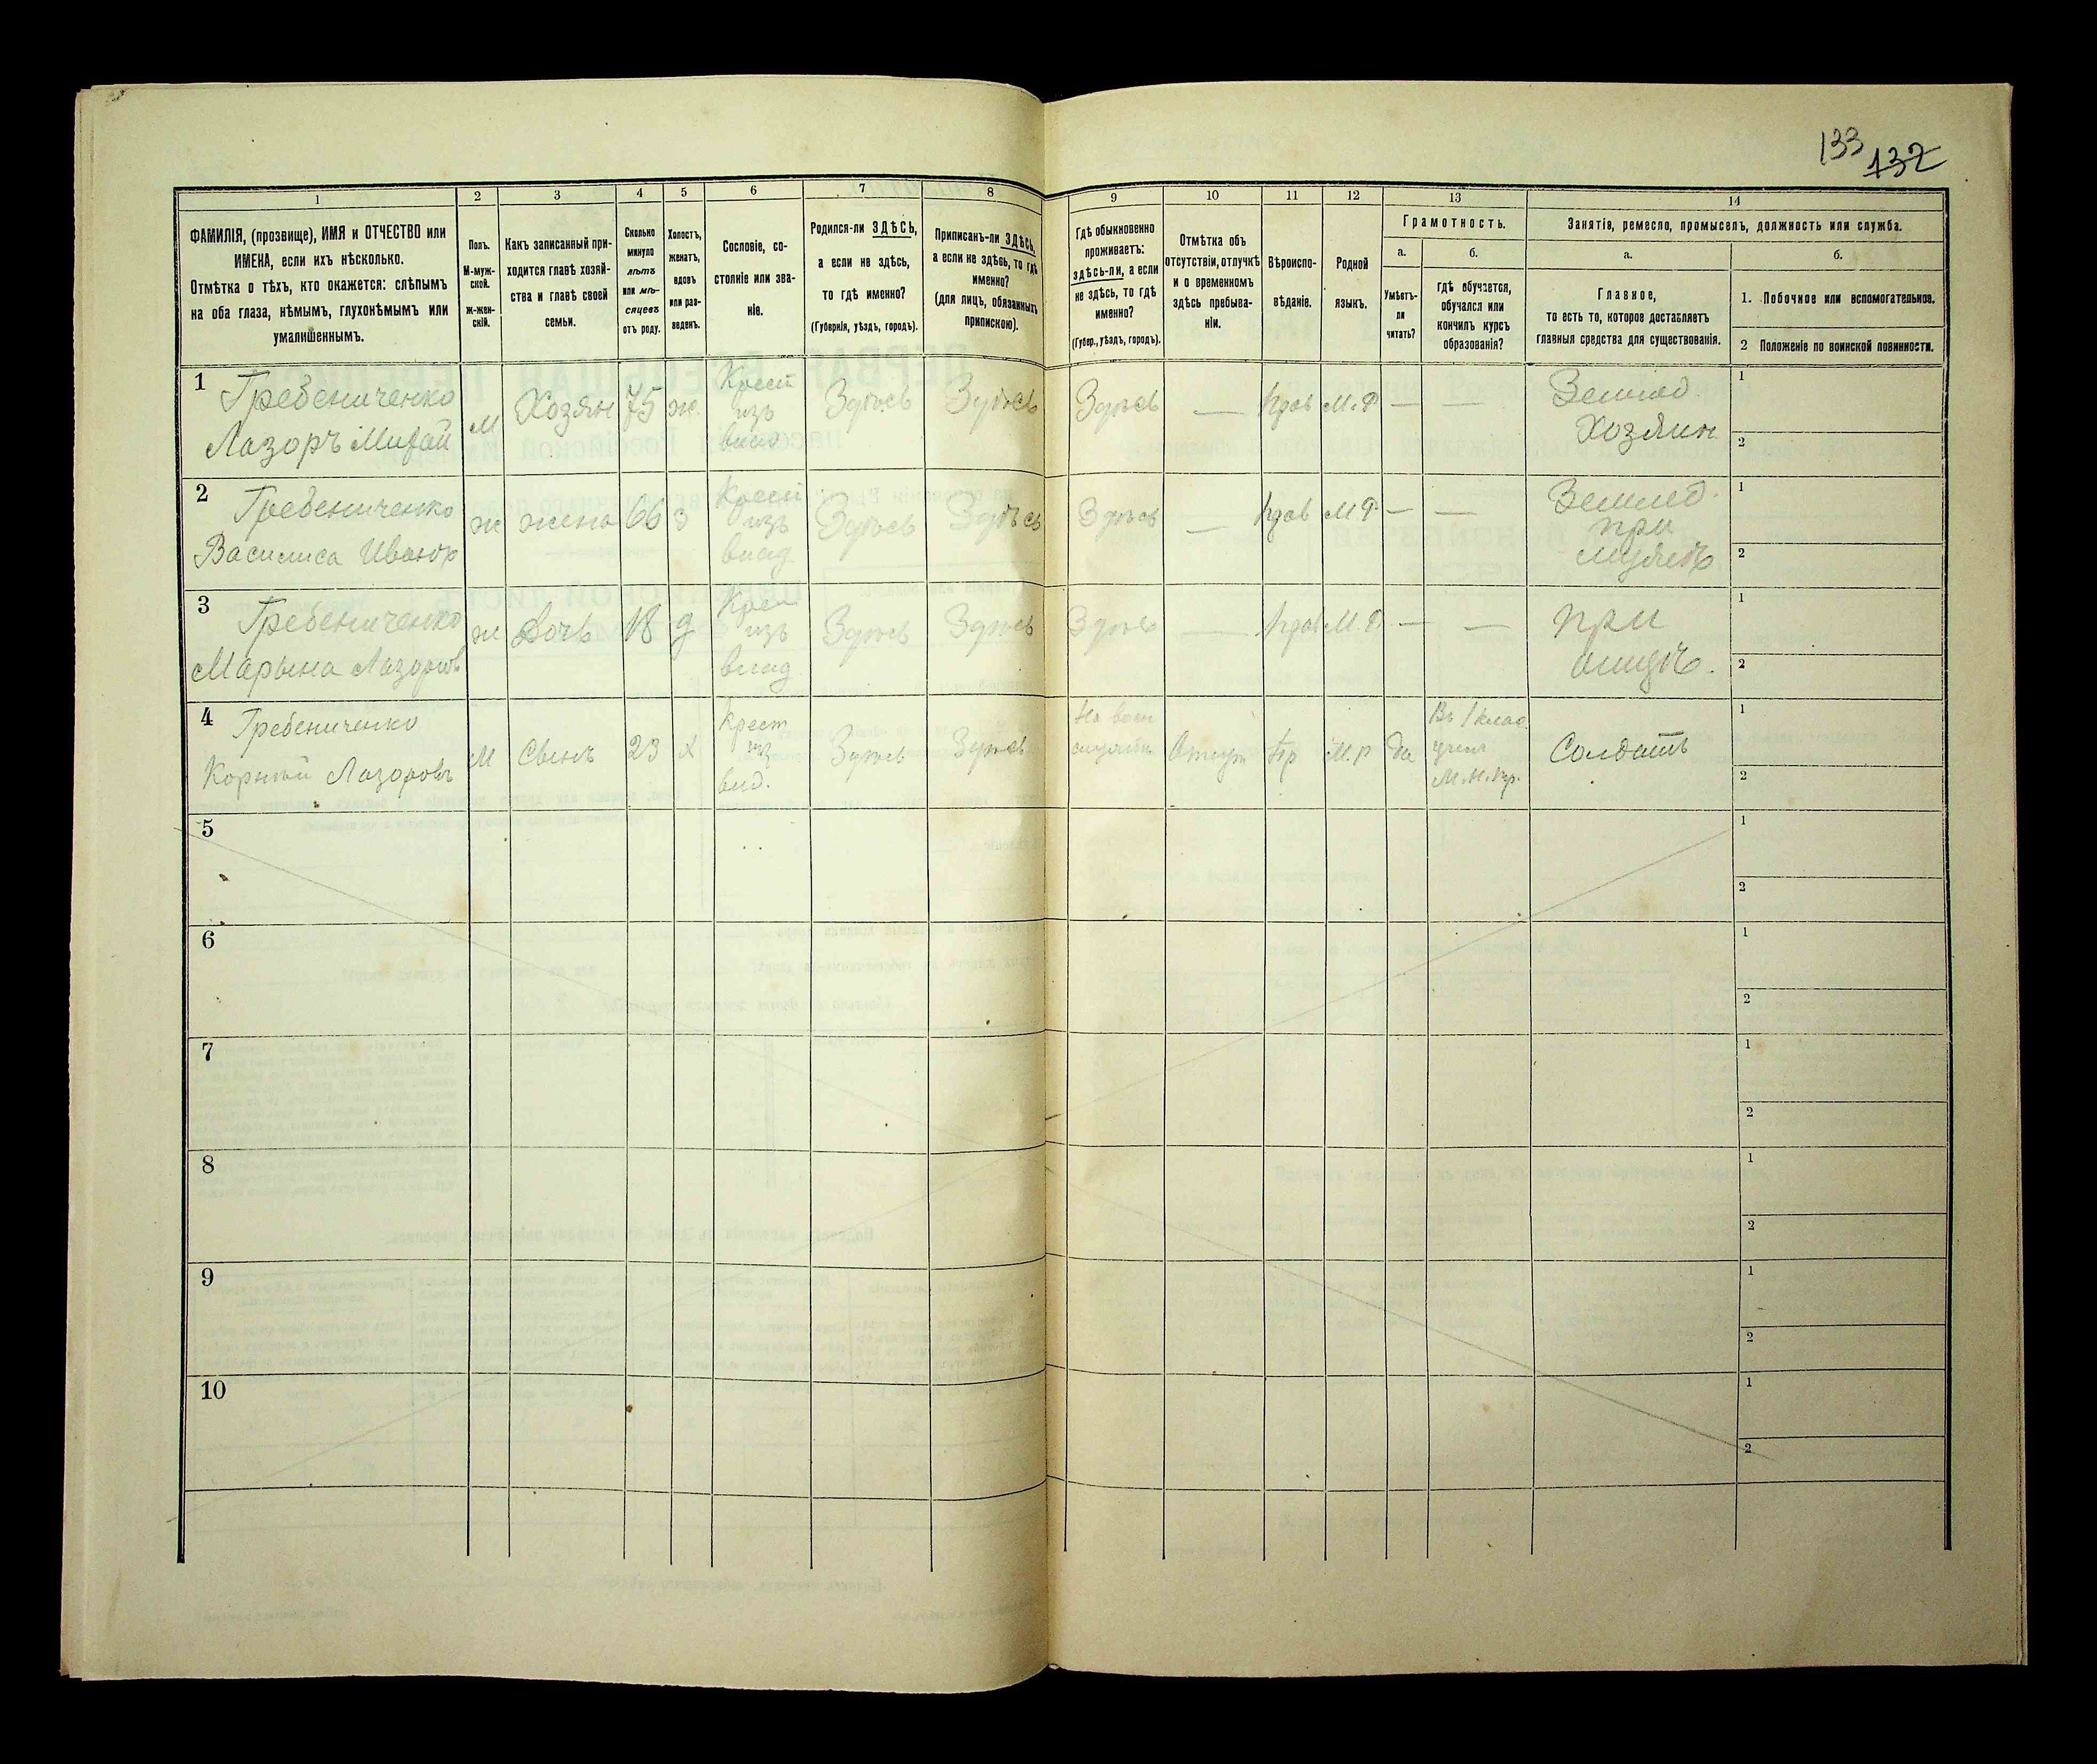 133
132
1
2
3
4
5
6
7
8
ФАМИЛІЯ, (прозвище), ИМЯ и ОТЧЕСТВО или
ИМЕНА, если ихъ нѣсколько.
Отмѣтка о тѣхъ, кто окажется: слѣпымъ
на оба глаза, нѣмымъ, глухонѣмымъ или
умалишеннымъ.
Полъ.
М-муж-
ской.
ж-жен-
скій.
Какъ записанный при-
ходится главѣ хозяй-
ства и главѣ своей
семьи.
Сколько
минуло
лѣтъ
или мѣ-
сяцевъ
отъ роду.
Холостъ,
женатъ,
вдовъ
или раз-
веденъ.
Сословіе, со-
стояніе или зва-
ніе.
Родился-ли ЗДѢСЬ,
а если не здѣсь,
то гдѣ именно?
(Губернія, уѣздъ, городъ).
Приписанъ-ли ЗДѢСЬ,
а если не здѣсь, то гдѣ
именно?
(для лицъ, обязанныхъ
припискою).
9
10
11
12
13
14
Гдѣ обыкновенно
проживаетъ:
здѣсь-ли, а если
не здѣсь, то гдѣ
именно?
(Губер., уѣздъ, городъ).
Отмѣтка объ
отсутствіи, отлучкѣ
и о временномъ
здѣсь пребыва-
ніи.
Вѣроиспо-
вѣданіе.
Родной
языкъ.
Грамотность.
а.
Умѣетъ-
ли
читать?
б.
гдѣ обучается,
обучался или
кончилъ курсъ
образованія?
Занятія, ремесло, промыселъ, должность или служба.
а.
Главное,
то есть то, которое доставляетъ
главныя средства для существованія.
б.
1. Побочное или вспомогательное.
2 Положеніе по воинской повинности.
1
Гребениченко
Лазоръ
М
Хозяин
75
ж.
Крест
изъ
Здѣсь
Здѣсь
Здѣсь
—
прав
М.Р
—
—
Землед.
Хозяин
1
2
2
Гребениченко
Василиса
ж
жена
66
з
Крест
изъ
влад
Здѣсь
Здѣсь
Здѣсь
—
прав
М Р
—
—
Землед.
при
1
2
3
Гребениченко
Марына
ж
Дочь
18
д
Крест
изъ
влад.
Здѣсь
Здѣсь
Здѣсь
—
прав
М.Р.
—
—
при
1
2
4
Гребениченко
Корній Лазоровъ
М
Сынъ
23
х
Крест
изъ
Здѣсь
Здѣсь
На воен
Отсут
Пр
М.Р
Да
Солдатъ
1
2
5
1
2
6
1
2
7
1
2
8
1
2
9
1
2
10
1
2